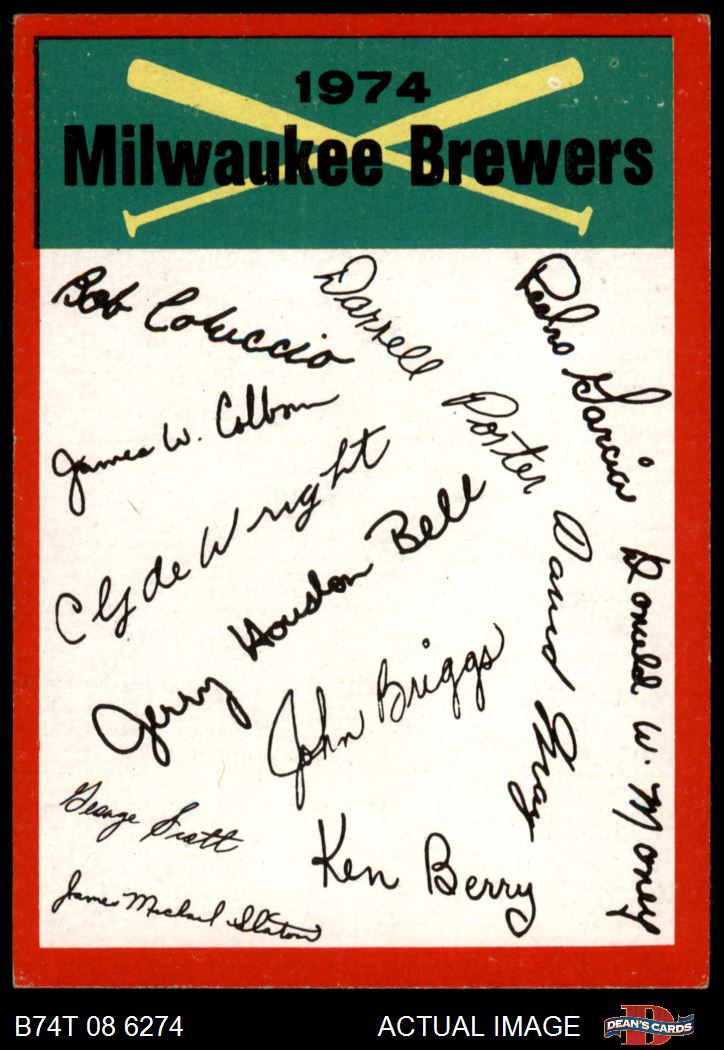 1974
Milwaukee Brewers
Bob Coluccio
Darrell Porter
Pedro Garcia
James W. Colborn
Clyde Wright
Jerry Houston Bell
David May
Donald W. Money
John Briggs
George Scott
Ken Berry
James Michael Slaton
B74T 08 6274
ACTUAL IMAGE
D
DEAN'S CARDS